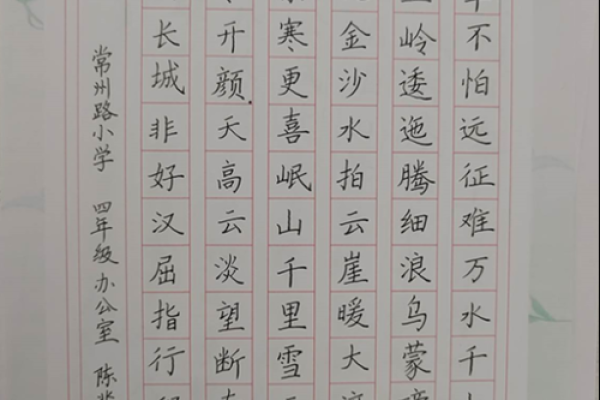 不怕远征难万水千
岭逶迤腾细浪乌蒙
金沙水拍云崖暖大
寒更喜岷山千里雪
开颜天高云淡望断
长城非好汉屈指行
常州路小学 四年级办公室 陈